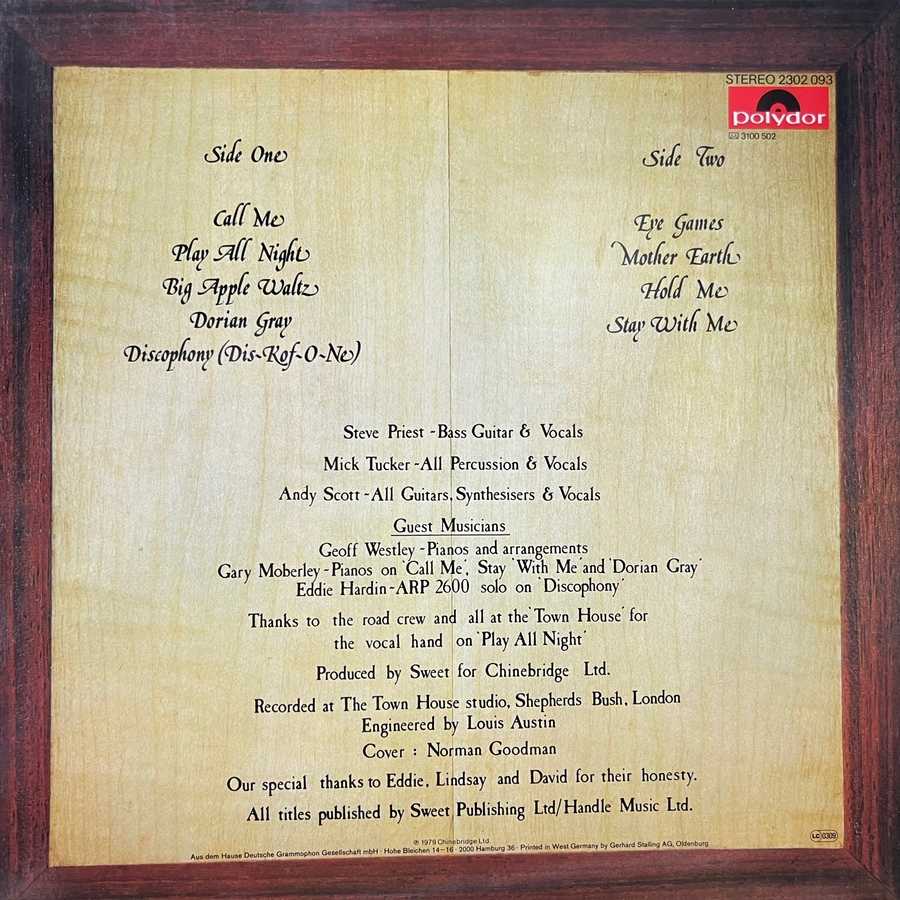 STEREO 2302 093
polydor
3100 502
Side One
Call Me
Play All Night
Big Apple Waltz
Dorian Gray
Discophony (Dis-Kof-O-Ne)
Side Two
Eye Games
Mother Earth
Hold Me
Stay With Me
Steve Priest - Bass Guitar & Vocals
Mick Tucker - All Percussion & Vocals
Andy Scott - All Guitars, Synthesisers & Vocals
Guest Musicians
Geoff Westley - Pianos and arrangements
Gary Moberley - Pianos on 'Call Me', Stay 'With Me' and 'Dorian Gray'
Eddie Hardin - ARP 2600 solo on 'Discophony'
Thanks to the road crew and all at the 'Town House' for
the vocal hand on 'Play All Night'
Produced by Sweet for Chinebridge Ltd.
Recorded at The Town House studio, Shepherds Bush, London
Engineered by Louis Austin
Cover : Norman Goodman
Our special thanks to Eddie, Lindsay and David for their honesty.
All titles published by Sweet Publishing Ltd/Handle Music Ltd.
LC 0309
℗ 1979 Chinebridge Ltd.
Aus dem Hause Deutsche Grammophon Gesellschaft mbH · Hohe Bleichen 14-16 · 2000 Hamburg 36 · Printed in West Germany by Gerhard Stalling AG, Oldenburg